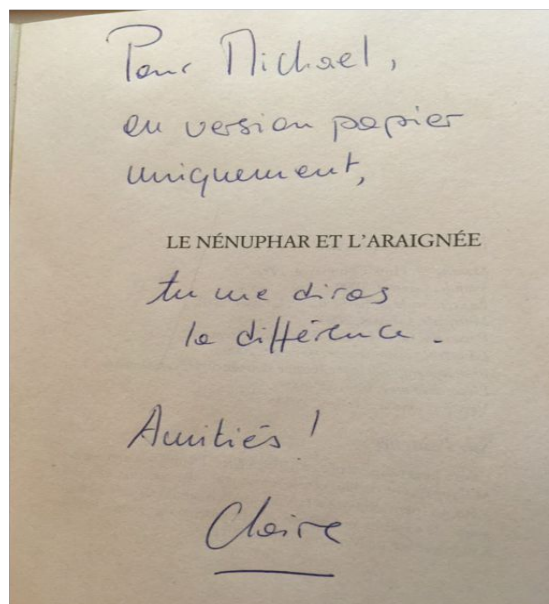 Pour Michael,
en version papier
uniquement,
LE NÉNUPHAR ET L'ARAIGNÉE
tu me diras
la différence.
Amitiés !
Claire